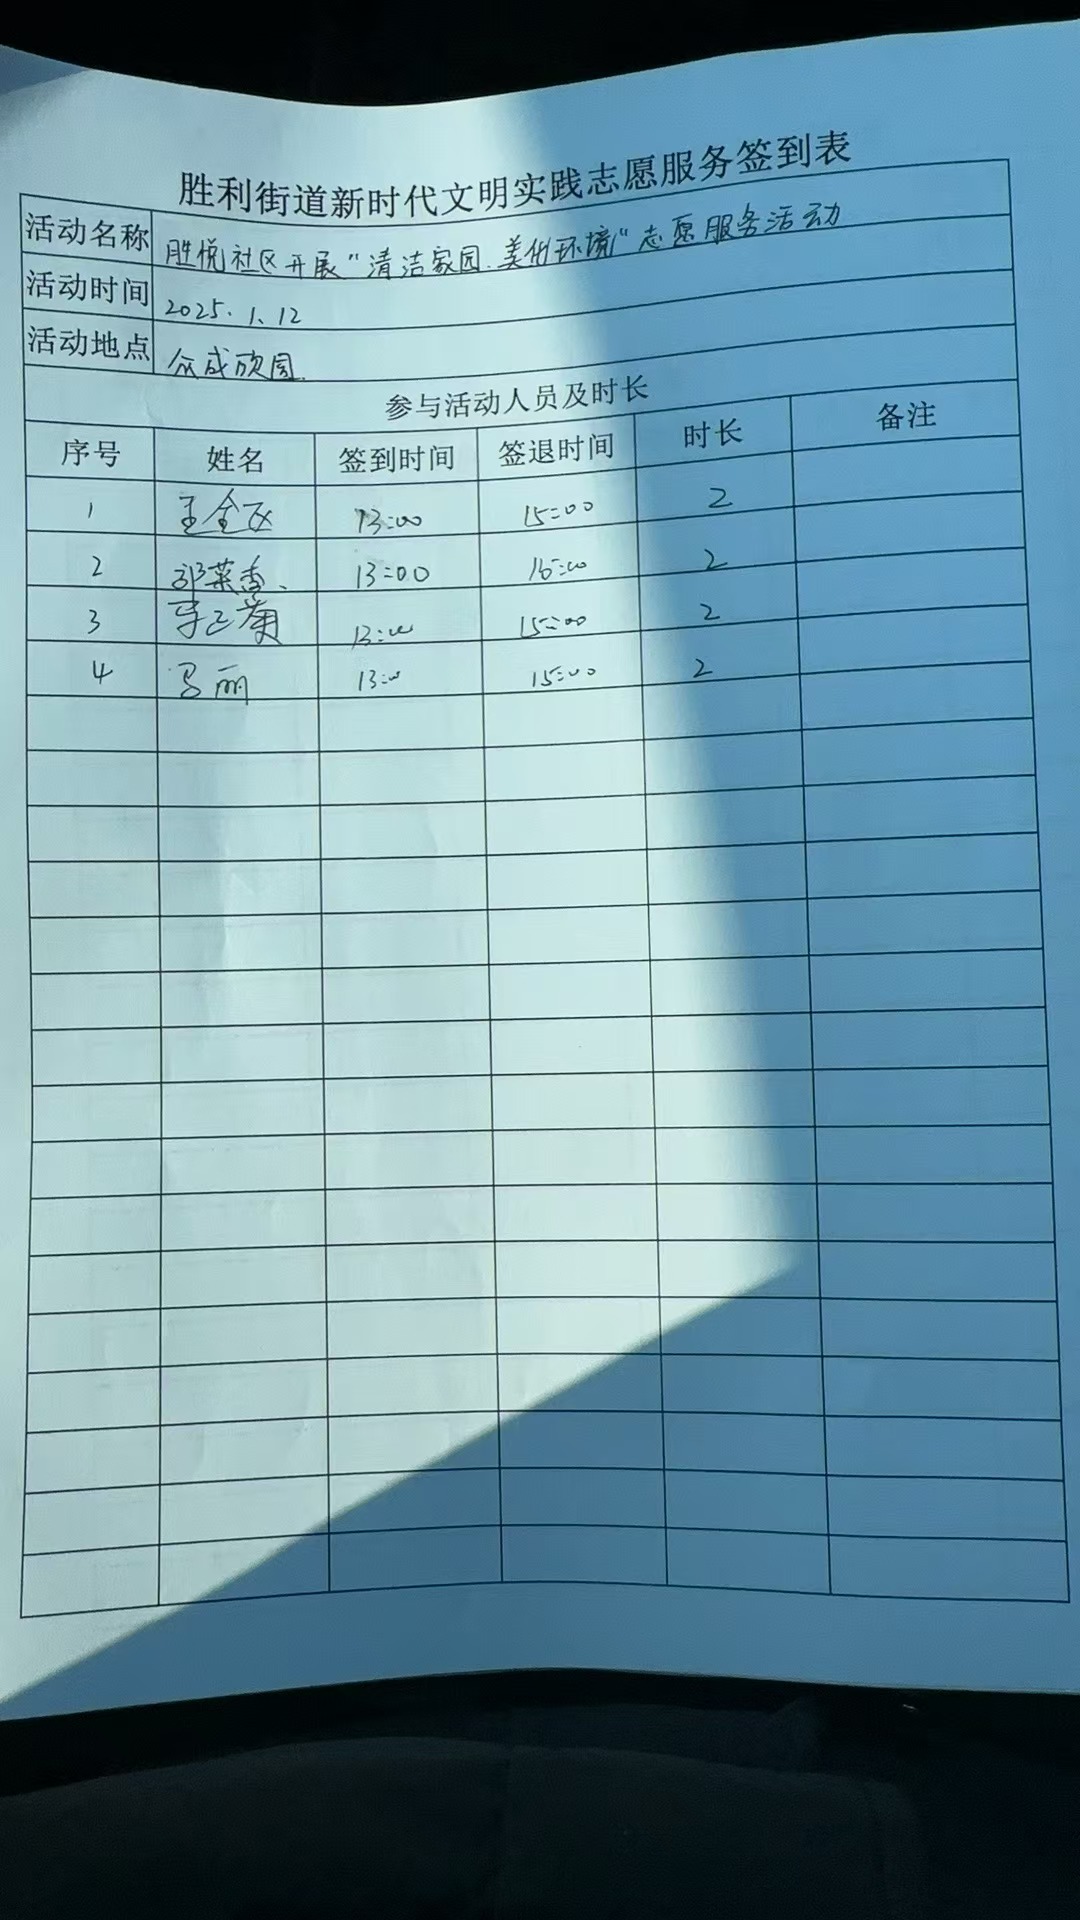 胜利街道新时代文明实践志愿服务签到表
活动名称 胜悦社区开展“清洁家园.美化环境”志愿服务活动
活动时间 2025.1.12
活动地点 众成欣园.
参与活动人员及时长
序号 姓名 签到时间 签退时间 时长 备注
1 13:00 15:00 2
2 13:00 15:00 2
3 13:00 15:00 2
4 马丽 13:00 15:00 2